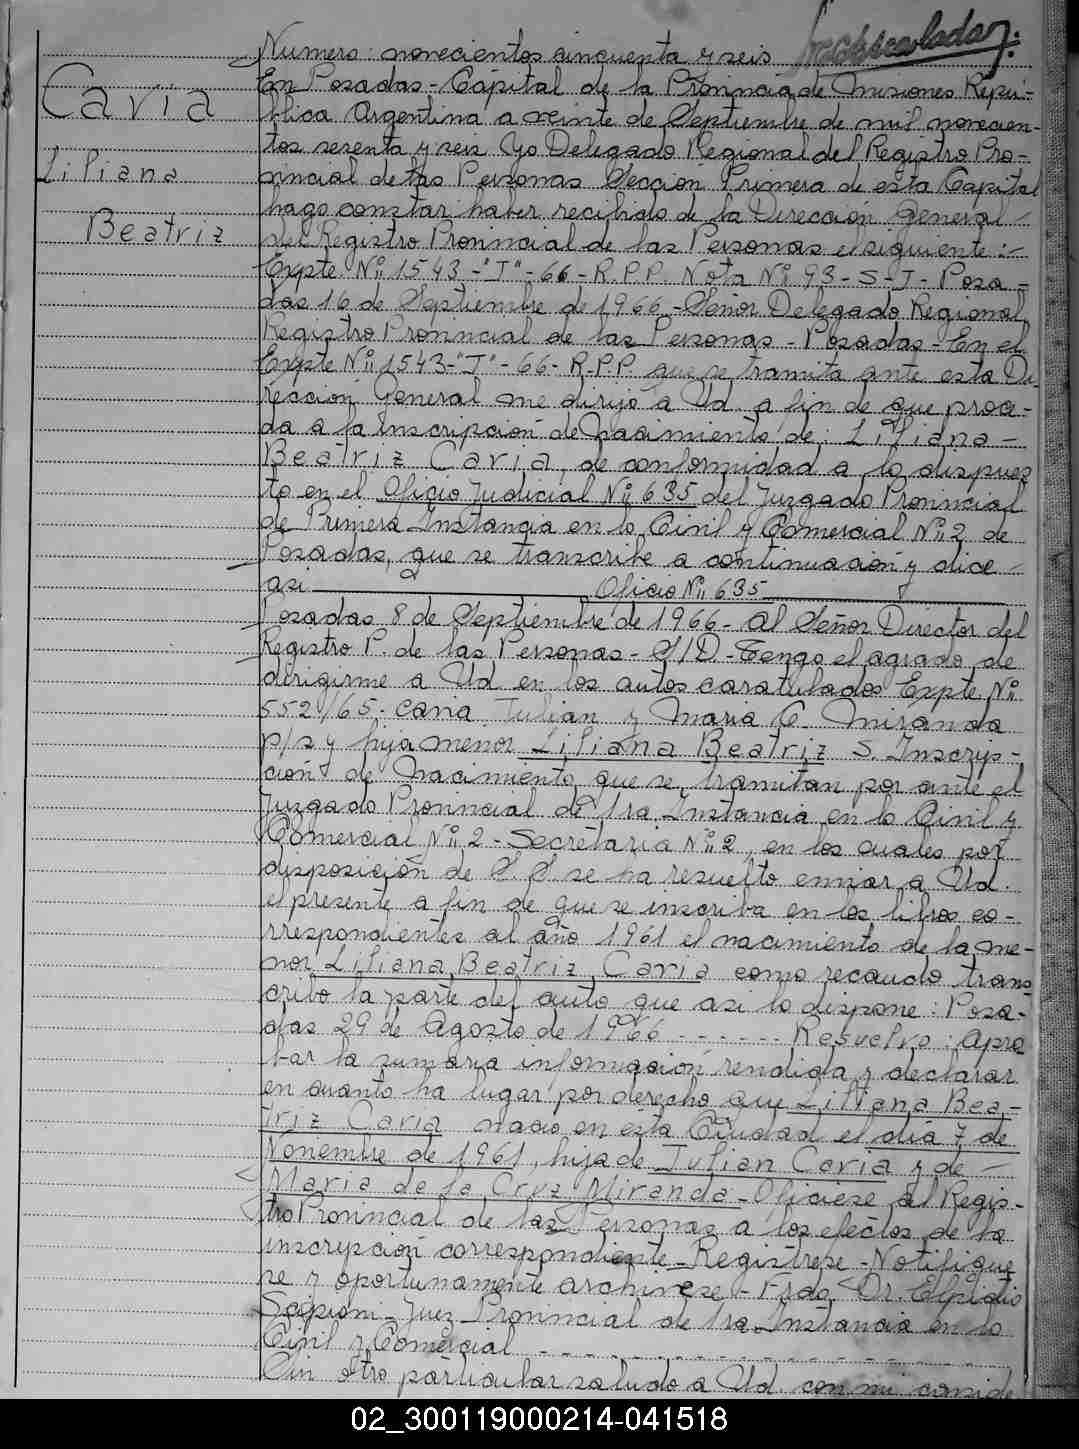 Cavia
Liliana
Beatriz
Numero: novecientos cincuenta y seis
En Posadas - Capital de la Provincia de Misiones Repú-
blica Argentina a veinte de Septiembre de mil novecien-
tos sesenta y seis Yo Delegado Regional del Registro Pro-
vincial de las Personas Sección Primera de esta Capital
hago constar haber recibido de la Dirección General -
del Registro Provincial de las Personas el siguiente:-
Expte Nº 1543-"J"-66-R.P.P. Nota Nº 93-S-J- Posa-
das 16 de Septiembre de 1966 - Señor Delegado Regional
Registro Provincial de las Personas - Posadas - En el
Expte Nº 1543-"J"-66-R.P.P. que se tramita ante esta Di-
rección General me dirijo a Ud. a fin de que proce-
da a la inscripción de Nacimiento de: Liliana -
Beatriz Cavia, de conformidad a lo dispues
to en el Oficio Judicial Nº 635 del Juzgado Provincial
de Primera Instancia en lo Civil y Comercial Nº 2 de
Posadas, que se transcribe a continuación y dice -
asi Oficio Nº 635
Posadas 8 de Septiembre de 1966 - Al Señor Director del
Registro P. de las Personas - S/D - Tengo el agrado de
dirigirme a Ud en los autos caratulados Expte Nº
552/65 - Cavia Julian y Maria C. Miranda
p/s y hija menor Liliana Beatriz S. Inscrip-
ción de Nacimiento que se tramitan por ante el
Juzgado Provincial de 1ra Instancia en lo Civil y
Comercial Nº 2 - Secretaria Nº 2, en los cuales por
disposición de S.S se ha resuelto enviar a Ud.
el presente a fin de que se inscriba en los libros co-
rrespondientes al año 1961 el nacimiento de la me-
nor Liliana Beatriz Cavia como recaudo trans
cribo la parte del auto que asi lo dispone: Posa-
das 29 de Agosto de 1966 ------ Resuelvo: Apro
bar la sumaria información rendida y declarar
en cuanto ha lugar por derecho que Liliana Bea-
triz Cavia nacio en esta Ciudad el día 7 de
Noviembre de 1961, hija de Julian Cavia y de -
Maria de la Cruz Miranda - Oficiese al Regis-
tro Provincial de las Personas a los efectos de la
inscripción correspondiente - Registrese - Notifique
se y oportunamente archivese - Frdo. Dr. Elpidio
Scipioni - Juez Provincial de 1ra Instancia en lo
Civil y Comercial
Sin otro particular saludo a Ud. con mi conside
02_300119000214-041518